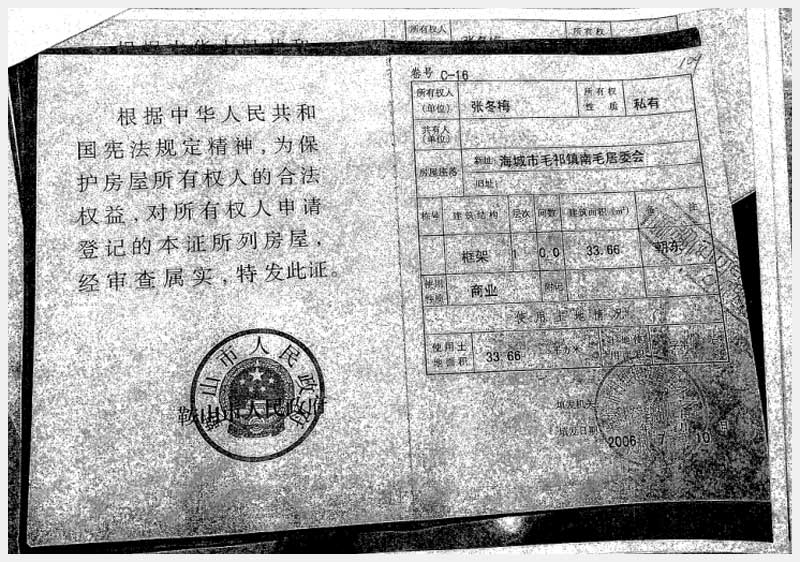 根据中华人民共和
国宪法规定精神，为保
护房屋所有权人的合法
权益，对所有权人申请
登记的本证所列房屋，
经审查属实，特发此证。
鞍山市人民政府
鞍山市人民政府
所有权人
所有权
卷号 C-16
104
所有权人(单位) 张冬梅 所有权性质 私有
共有人(单位)
房屋座落 新址: 海城市毛祁镇南毛居委会
旧址:
栋号 建筑结构 层次 间数 建筑面积(m²) 备注
框架 1 0.0 33.66 朝东
使用性质 商业 附记
使用土地情况
使用土地面积 33.66 平方米
填发机关
填发日期 2006 7 10